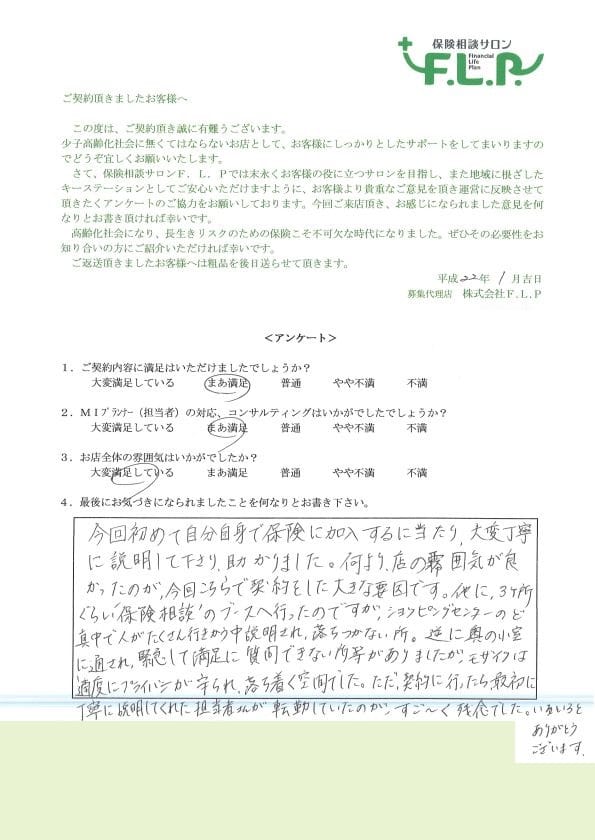 保険相談サロン
F.L.P.
Financial
Life
Plan
ご契約頂きましたお客様へ
この度は、ご契約頂き誠に有難うございます。
少子高齢化社会に無くてはならないお店として、お客様にしっかりとしたサポートをしてまいりますの
でどうぞ宜しくお願いいたします。
さて、保険相談サロンＦ．Ｌ．Ｐでは末永くお客様の役に立つサロンを目指し、また地域に根ざした
キーステーションとしてご安心いただけますように、お客様より貴重なご意見を頂き運営に反映させて
頂きたくアンケートのご協力をお願いしております。今回ご来店頂き、お感じになられました意見を何
なりとお書き頂ければ幸いです。
高齢化社会になり、長生きリスクのための保険こそ不可欠な時代になりました。ぜひその必要性をお
知り合いの方にご紹介いただければ幸いです。
ご返送頂きましたお客様へは粗品を後日送らせて頂きます。
平成22年 1月吉日
募集代理店 株式会社Ｆ.Ｌ.Ｐ
＜アンケート＞
１．ご契約内容に満足はいただけましたでしょうか？
大変満足している まあ満足 普通 やや不満 不満
２．ＭＩﾌﾟﾗﾝﾅｰ（担当者）の対応、コンサルティングはいかがでしたでしょうか？
大変満足している まあ満足 普通 やや不満 不満
３．お店全体の雰囲気はいかがでしたか？
大変満足している まあ満足 普通 やや不満 不満
４．最後にお気づきになられましたことを何なりとお書き下さい。
今回初めて自分自身で保険に加入するに当たり、大変丁寧
に説明して下さり、助かりました。何より、店の雰囲気が良
かったのが、今回こちらで契約をした大きな要因です。他に、3ヶ所
ぐらい“保険相談”のブースへ行ったのですが、ショッピングセンターのど
真中で人がたくさん行きかう中説明され、落ちつかない所。逆に奥の小室
に通され、緊急して満足に質問できない所等がありましたが、モザイクは
適度にプライバシーが守られ、落ち着く空間でした。ただ、契約に行ったら、最初に
丁寧に説明してくれた担当者さんが転勤していたのが、すご〜く残念でした。いろいろと
ありがとう
ございます。